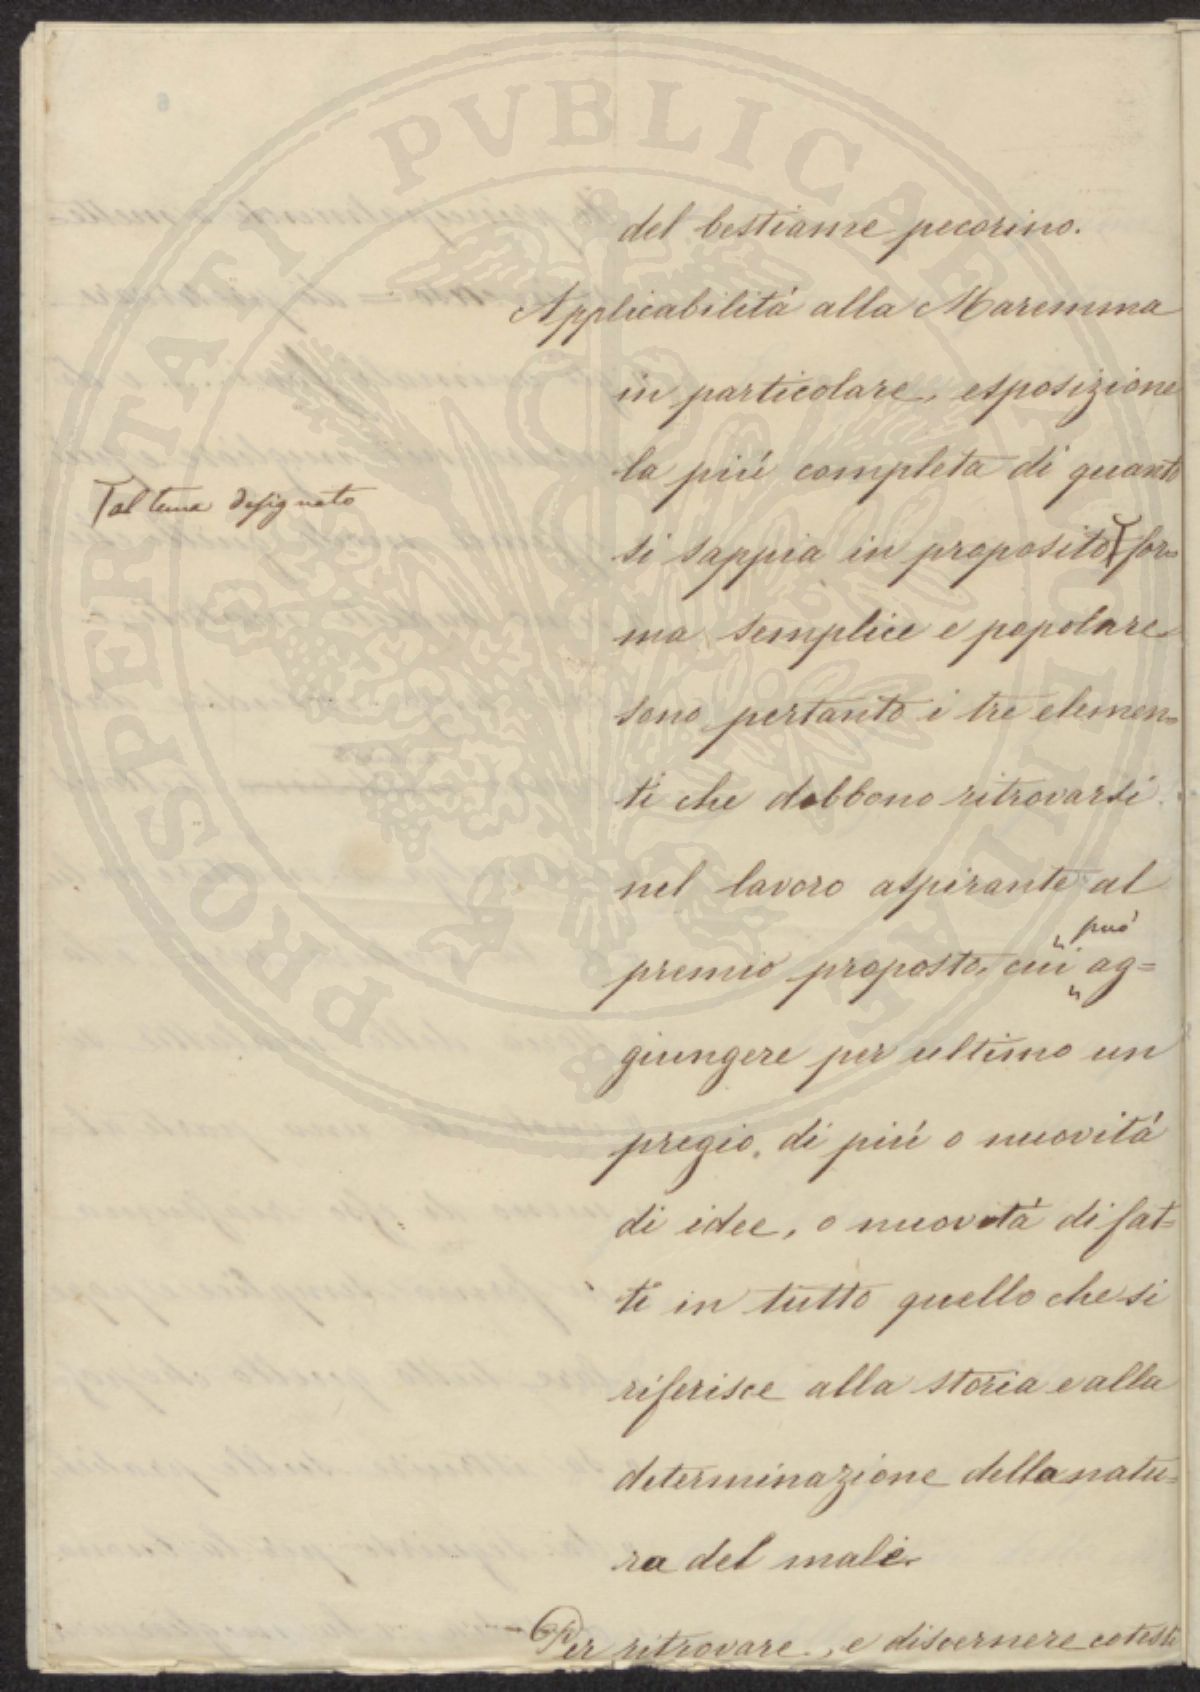 PROSPERITATI PVBLICAE
del bestiame pecorino.
Applicabilità alla Maremma
in particolare, esposizione
la più completa di quanto
al tema designato
si sappia in proposito for-
ma semplice e popolare
sono pertanto i tre elemen-
ti che debbono ritrovarsi
nel lavoro aspirante al
può
premio proposto, cui ag=
giungere per ultimo un
pregio, di più o nuovità
di idee, o nuovità di fat-
ti in tutto quello che si
riferisce alla storia e alla
determinazione della natu-
ra del male.
Per ritrovare, e discernere cotesti